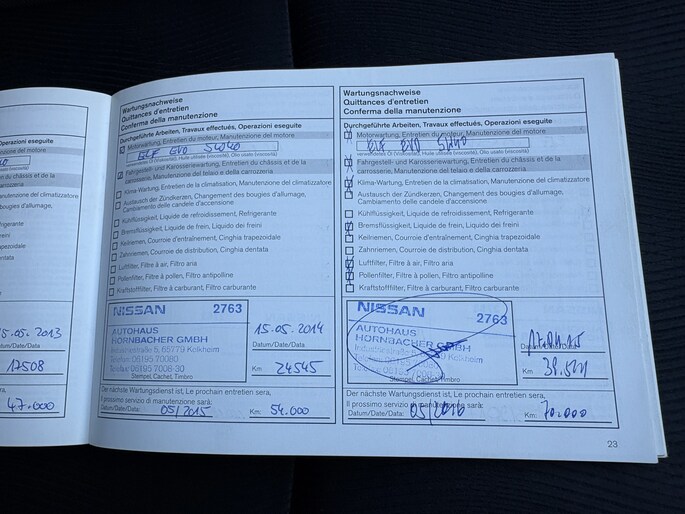 Operazioni eseguite
zione del motore
du châssis et de la
manutenzione del climatizzatore
bougies d'allumage,
Refrigerante
freni
trapezoidale
dentata
15.05.2013
Datum/Date/Data
17508
47.000
Wartungsnachweise
Quittances d'entretien
Conferma della manutenzione
Durchgeführte Arbeiten, Travaux effectués, Operazioni eseguite
Motorwartung, Entretien du moteur, Manutenzione del motore
ELF EVO 5W40
Fahrgestell- und Karosseriewartung, Entretien du châssis et de la
carrosserie, Manutenzione del telaio e della carrozzeria
Klima-Wartung, Entretien de la climatisation, Manutenzione del climatizzatore
Austausch der Zündkerzen, Changement des bougies d'allumage,
Cambiamento delle candele d'accensione
Kühlflüssigkeit, Liquide de refroidissement, Refrigerante
Bremsflüssigkeit, Liquide de frein, Liquido dei freini
Keilriemen, Courroie d'entraînement, Cinghia trapezoidale
Zahnriemen, Courroie de distribution, Cinghia dentata
Luftfilter, Filtre à air, Filtro aria
Pollenfilter, Filtre à pollen, Filtro antipolline
Kraftstofffilter, Filtre à carburant, Filtro carburante
NISSAN 2763
AUTOHAUS
HORNBACHER GMBH
Industriestraße 5, 65779 Kelkheim
Telefon 06195 70080
Telefax 06195 7008-30
Stempel, Cachet, Timbro
15.05.2014
Datum/Date/Data
Km: 24545
Der nächste Wartungsdienst ist, Le prochain entretien sera,
Il prossimo servizio di manutenzione sarà:
Datum/Date/Data: 05/2015 Km: 54.000
Wartungsnachweise
Quittances d'entretien
Conferma della manutenzione
Durchgeführte Arbeiten, Travaux effectués, Operazioni eseguite
Motorwartung, Entretien du moteur, Manutenzione del motore
ELF EVO 5W40
Fahrgestell- und Karosseriewartung, Entretien du châssis et de la
carrosserie, Manutenzione del telaio e della carrozzeria
Klima-Wartung, Entretien de la climatisation, Manutenzione del climatizzatore
Austausch der Zündkerzen, Changement des bougies d'allumage,
Cambiamento delle candele d'accensione
Kühlflüssigkeit, Liquide de refroidissement, Refrigerante
Bremsflüssigkeit, Liquide de frein, Liquido dei freini
Keilriemen, Courroie d'entraînement, Cinghia trapezoidale
Zahnriemen, Courroie de distribution, Cinghia dentata
Luftfilter, Filtre à air, Filtro aria
Pollenfilter, Filtre à pollen, Filtro antipolline
Kraftstofffilter, Filtre à carburant, Filtro carburante
NISSAN 2763
AUTOHAUS
HORNBACHER GMBH
Industriestraße 5, 65779 Kelkheim
Telefon 06195 70080
Stempel, Cachet, Timbro
Datum/Date/Data
Km:
Der nächste Wartungsdienst ist, Le prochain entretien sera,
Il prossimo servizio di manutenzione sarà:
Datum/Date/Data: 05/2016 Km: 70.000
23